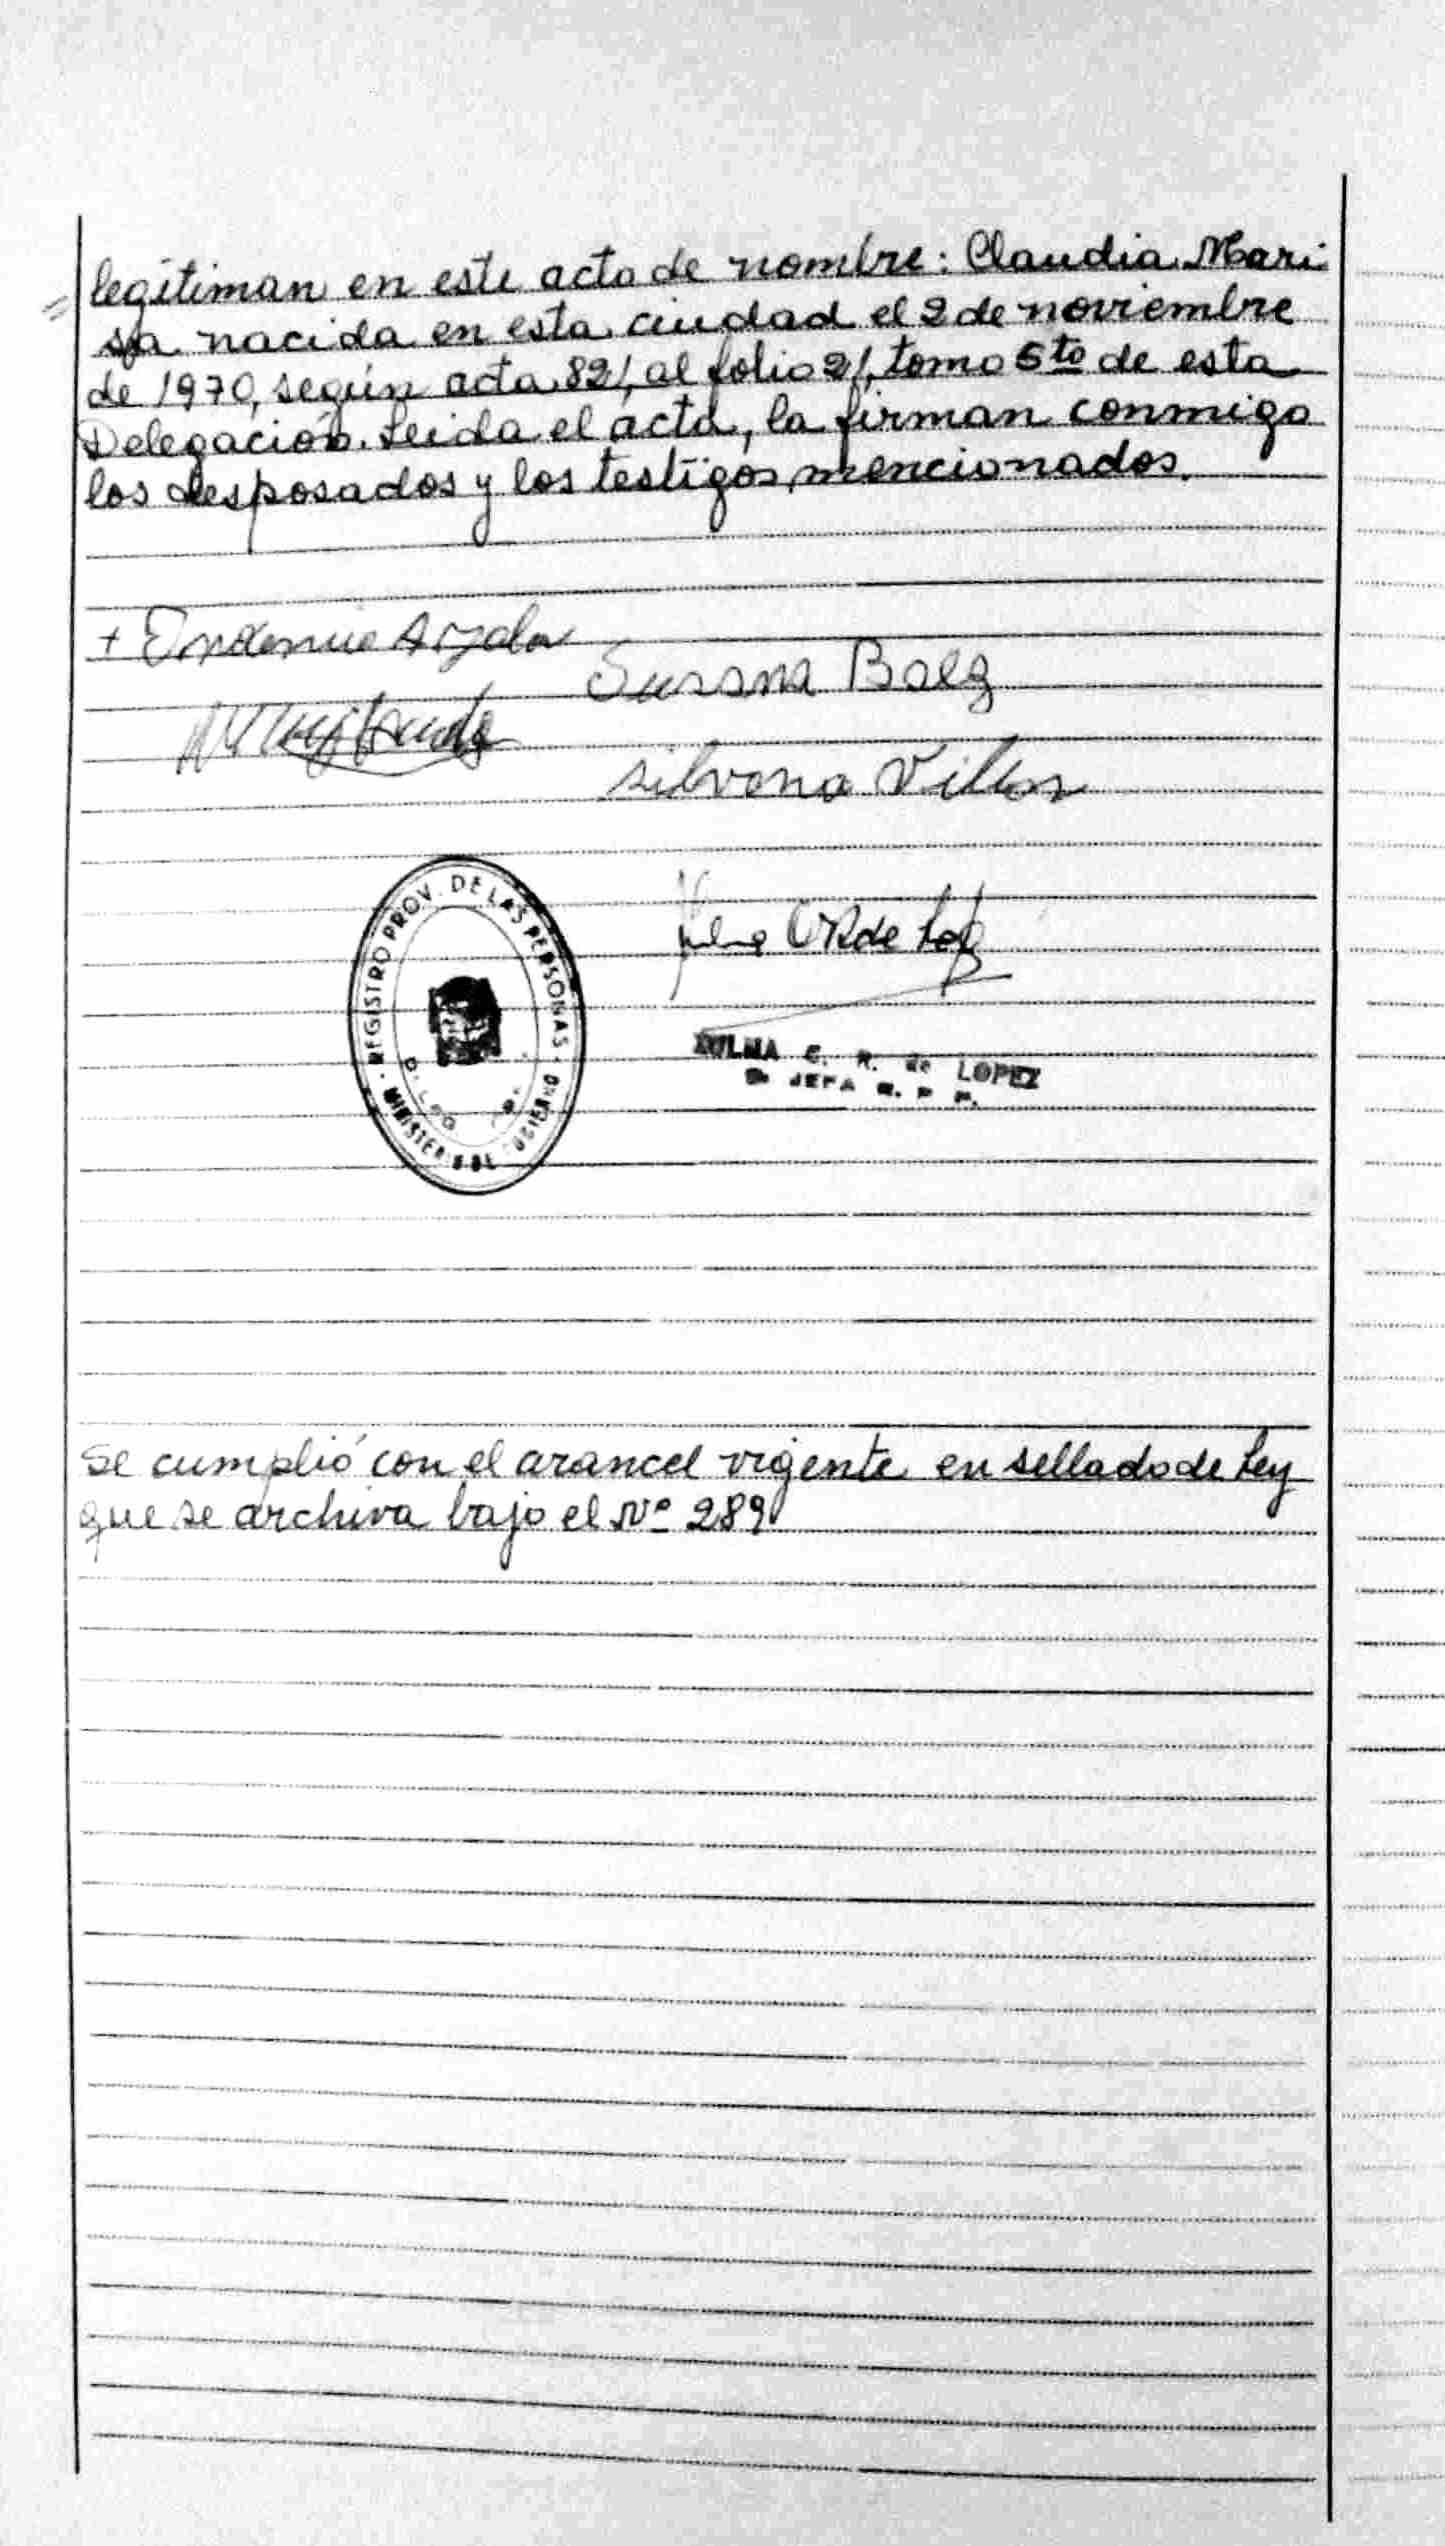 legitiman en este acto de nombre: Claudia Mari
sa nacida en esta ciudad el 2 de noviembre
de 1970, según acta 821, al folio 21, tomo 5to de esta
Delegación. Leida el acta, la firman conmigo
los desposados y los testigos mencionados.
+ Ayala
Susana Baez
silvana Villar
de Lop
REGISTRO PROV. DE LAS PERSONAS
MINISTERIO DE GOBIERNO
ZULMA C. R. de LOPEZ
JEFA R. P. P.
Se cumplió con el arancel vigente en sellado de Ley
que se archiva bajo el Nº 289